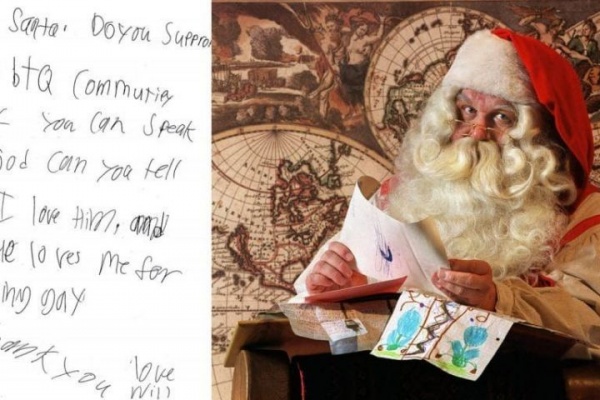 Santa. Do you Suppor
btQ Community
f you can Speak
od can you tell
I love Him. and
He loves me for
ing gay
ank you love
Will